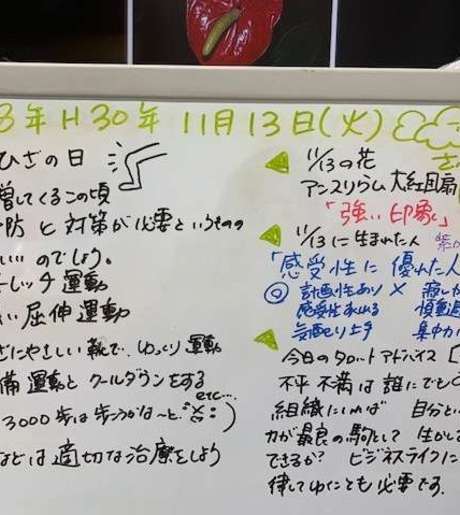 8年 H30年 11月13日(火)
ひざの日
増してくるこの頃
防 と 対策が必要というものの
いい…のでしょう。
レッチ運動
い 屈伸運動
ざにやさしい靴で、ゆっくり運動
備運動とクールダウンをする
etc…
3000歩は歩こうかな〜と
などは適切な治療をしよう
11/13の花
アンスリウム 大紅団扇
「強い印象」
11/13に生まれた人
「感受性に優れた人
◎ 計画性あり ×
感受性あふれる
気配り上手 集中力
今日のタロットアドバイス [
不平不満は誰にでも
組織にいれば 自分と
力が最良の駒として 生かし
できるか? ビジネスライクに
律してゆくことも必要です。